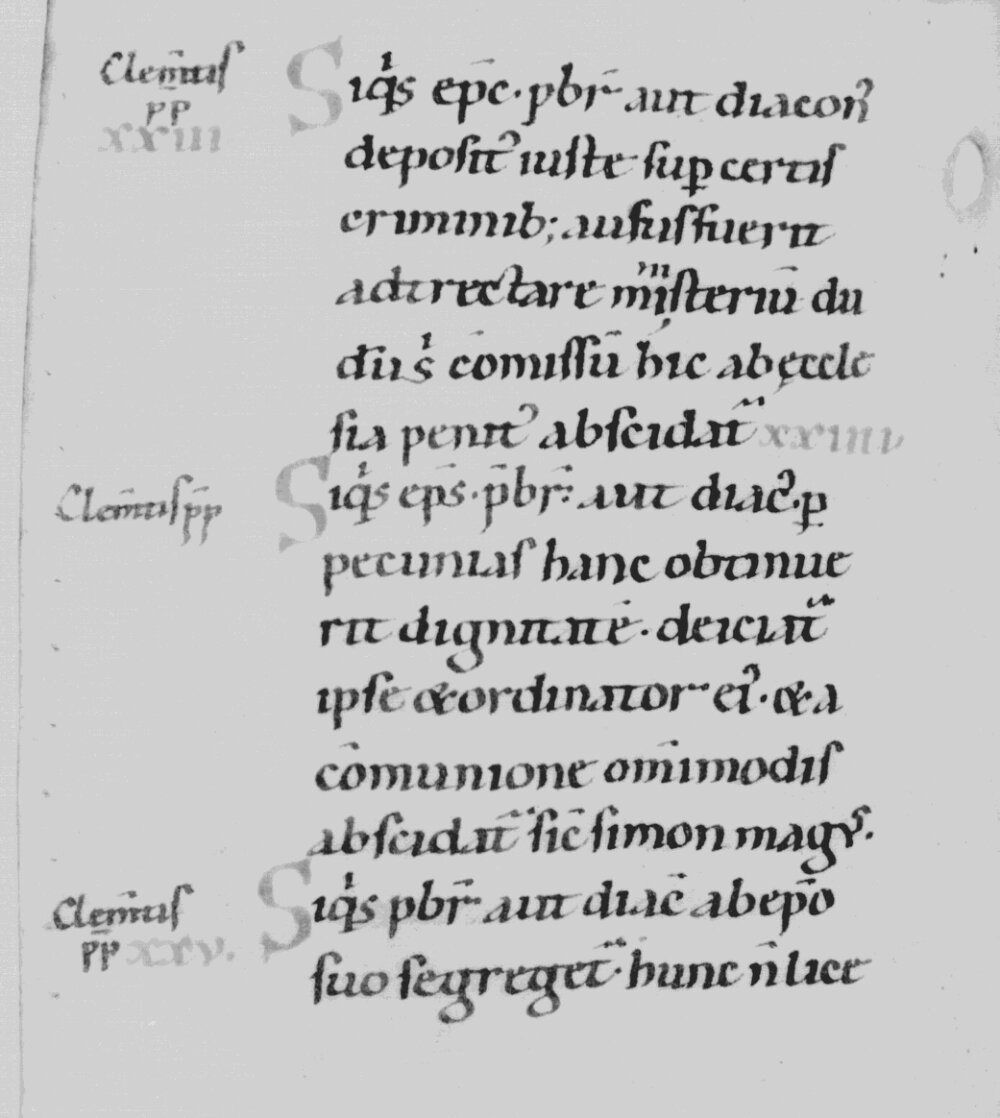 Clem̄tis
pp
xxiii
Siq͛s ep̄c · pbr̄ aut diacon᷒
deposit᷒ iuste suꝑ certis
criminib; ausus fuerit
adtrectare mīsteriū du
dū s̄ cōmissū hic ab ęccle
sia penit᷒ abscidat᷑ xxiiii
Clem̄tis p̄p
Siq͛s ep̄s · p̄br̄ · aut diac᷒ · ꝑ
pecunias hanc obtinue
rit dignitatē · deiciat᷑
ipse & ordinator ei᷒ · & a
cōmunione om̄imodis
abscidat᷑ sic̄ simon magus.
Clem̄tis
p̄p xxv.
Siq͛s pbr̄ aut diac̄ ab ep̄o
suo segreget᷑ · hunc n̄ lice